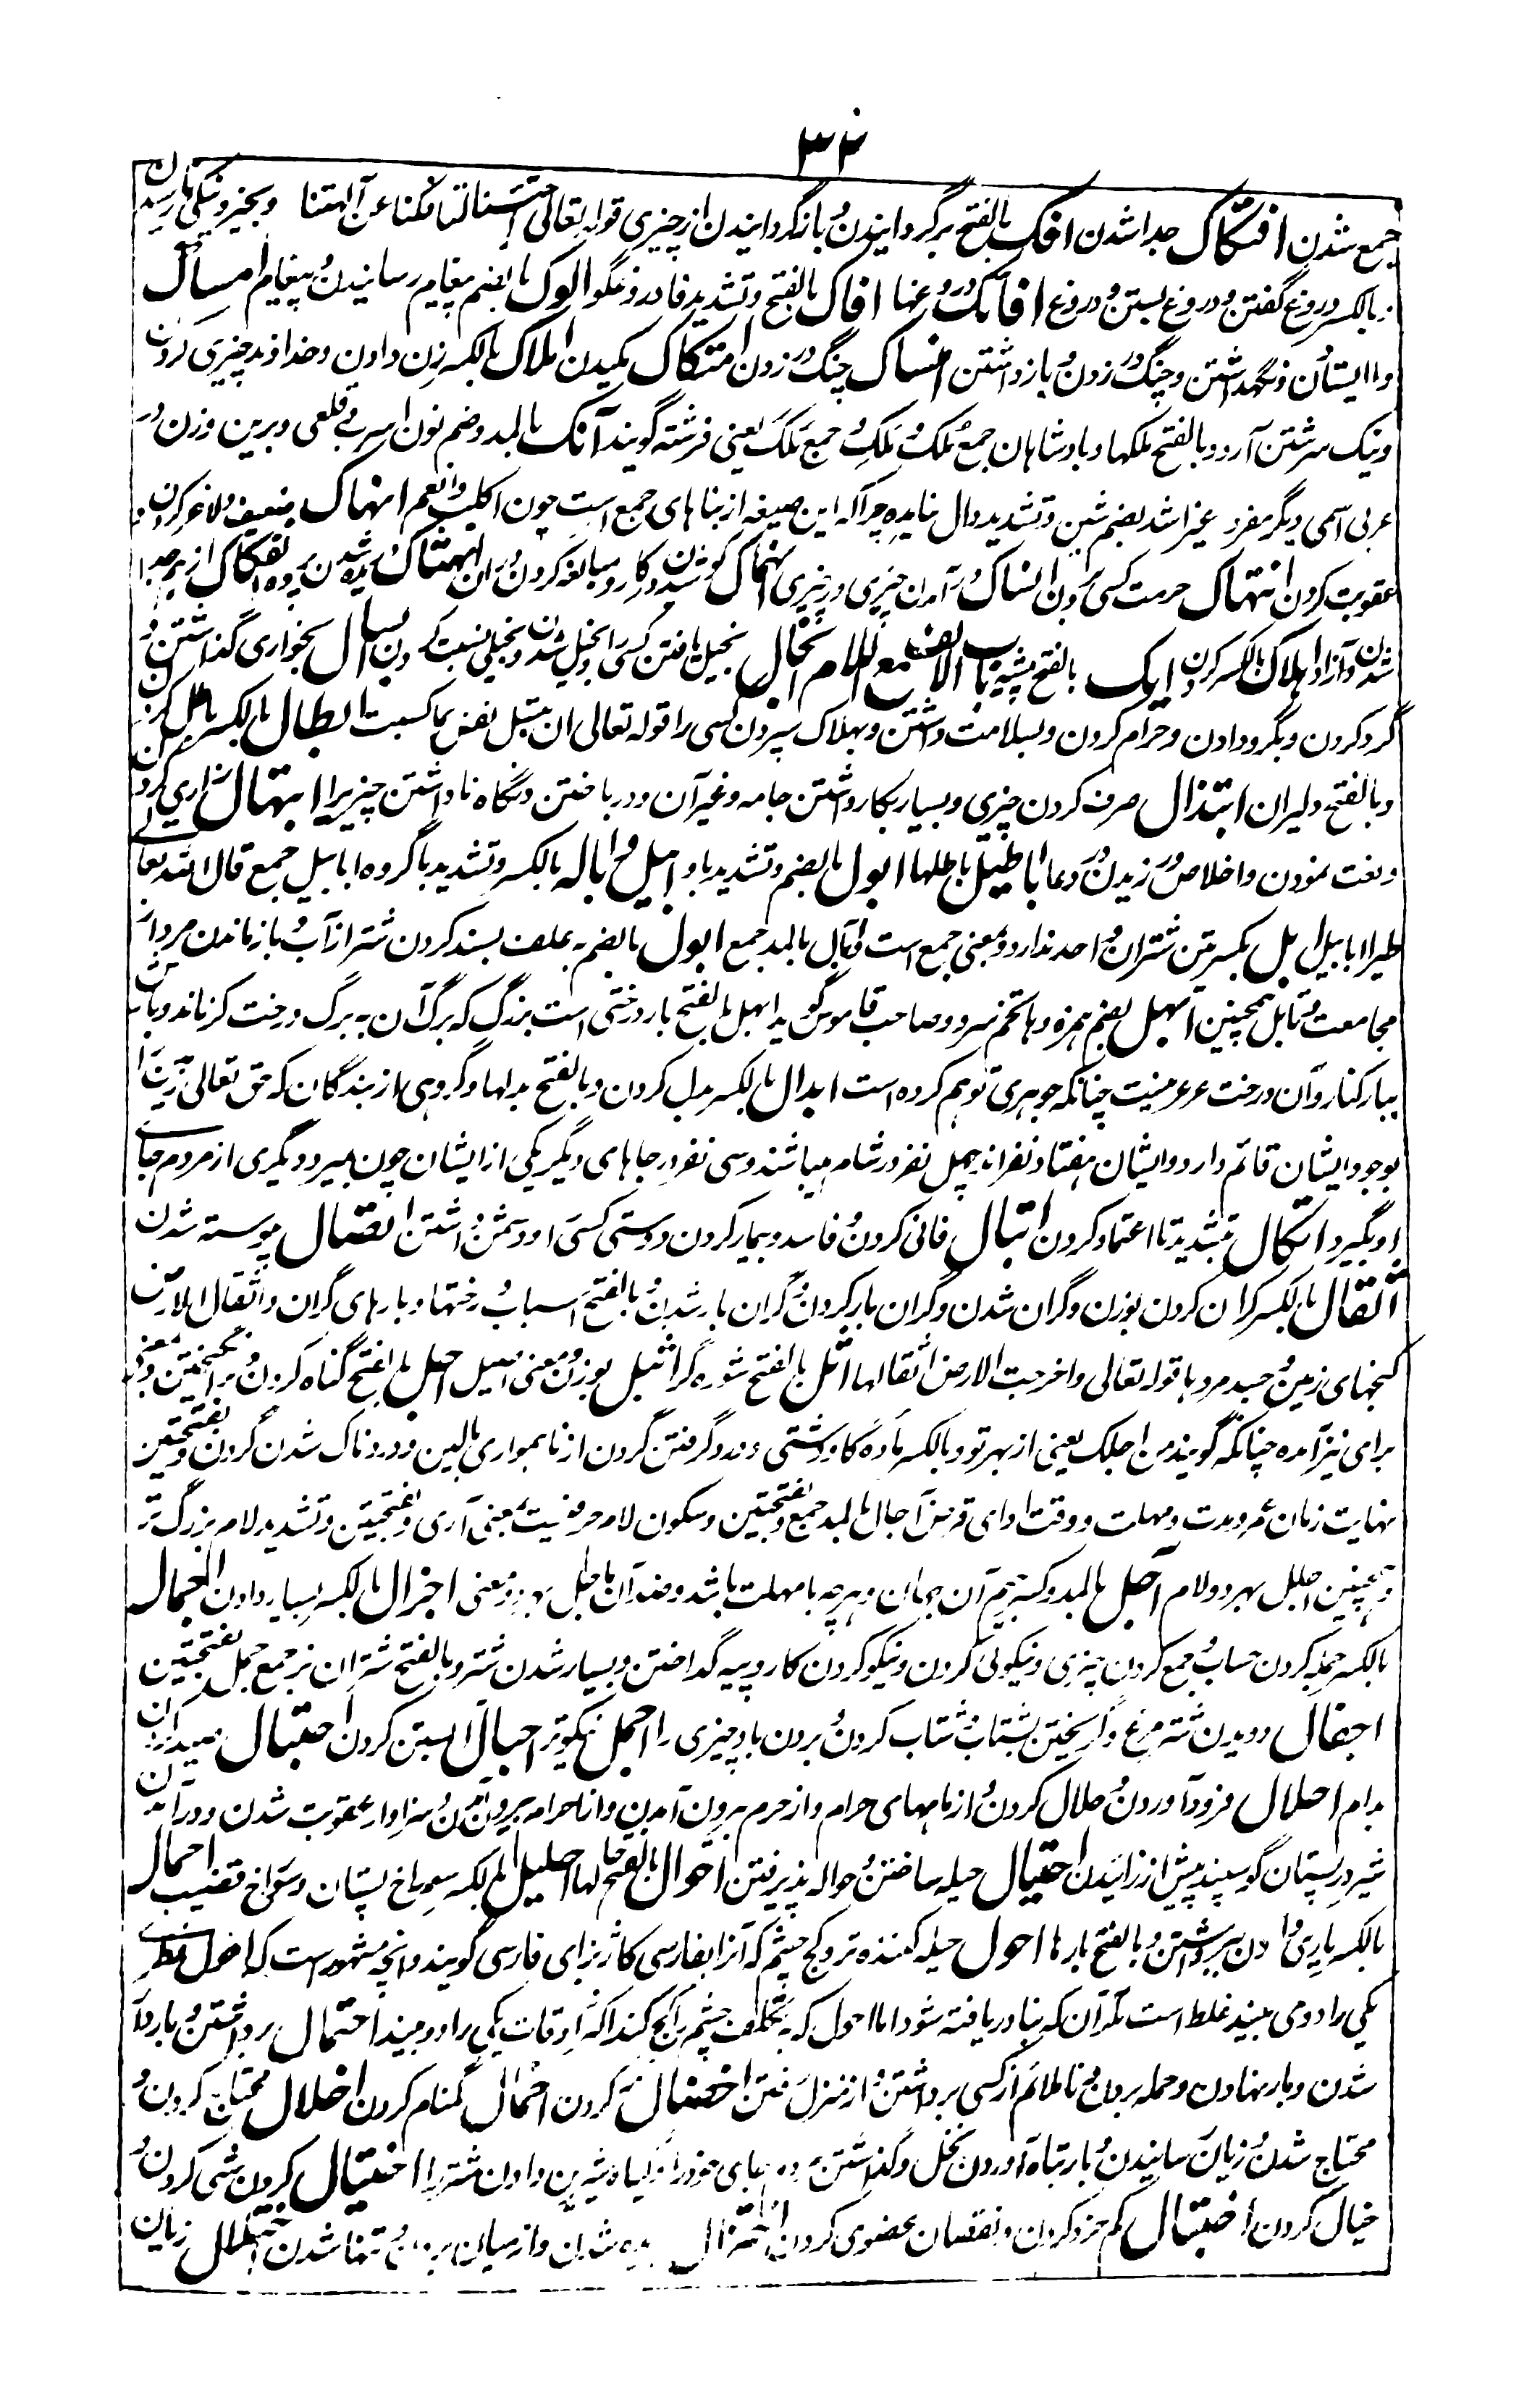 ۳۲
جمع شدن افتکاک جدا شدن افک بالفتح برگردانیدن و بازگردانیدن از چیزی قوله تعالی اجئتنا لتافکنا عن آلهتنا و بخیر و نیکی نارسیدن
بالکسر دروغ گفتن و دروغ بستن و دروغ افائک دروغها افاک بالفتح و تشدید فا دروغگو الوک بالضم پیغام رسانیدن و پیغام امساک
وا ایستادن و نگهداشتن و چنگ در زدن و بازداشتن امتساک چنگ در زدن امتکاک مکیدن املاک بالکسر زن دادن و خداوند چیزی کردن
و نیک سرشتن آرد و بالفتح ملکها و پادشاهان جمع مُلک مَلِک جمع مَلَک یعنی فرشته گویند آنک بالمد و ضم نون اسرب قلعی و برین وزن در
عربی اسمی دیگر مفرد غیر اشد بضم شین و تشدید دال نیامده چرا که این صیغه از بناهای جمع است چون اکلب و انعم انهاک ضعیف و لاغر کردن و
عقوبت کردن انتهاک حرمت کسی بردن انسلاک در آمدن چیزی در چیزی انهماک کوشیدن در کار و مبالغه کردن در آن انهتاک دریده شدن پرده انفکاک از هم جدا
شدن و آزاد اهلاک بالکسر کردن ایک بالفتح بیشه باب الالف مع اللام ابخال بخیل یافتن کسی را و بخیل شدن و بخیلی نسبت کردن ابسال بخواری گذاشتن و
گرد کردن و بگرو دادن و حرام کردن و بسلامت داشتن و بهلاک سپردن کسی را قوله تعالی ان تبسل نفس بما کسبت ابطال بالکسر باطل کردن
و بالفتح دلیران ابتذال صرف کردن چیزی و بسیار بکار داشتن جامه و غیر آن و در باختن و نگاه ناداشتن چیزیرا ابتهال زاری کردن
و لعنت نمودن و اخلاص ورزیدن در دعا اباطیل باطلها ابول بالضم و تشدید با و ابیل و ابالة بالکسر و تشدید با گروه ابابیل جمع قال الله تعالی
طیرا ابابیل ابل بکسرتین شتران و احد ندارد و بمعنی جمع است آبال بالمد جمع ابول بالضم به علف بسند کردن شتر از آب و باز ماندن مرد از
مجامعت و تابل همچنین ابهل بضم همزه و ها تخم سرو و صاحب قاموس گوید ابهل بالفتح بار درختی است بزرگ که برگ آن به برگ درخت گز ماند و بارش
ببار کنار و آن درخت عرعر نیست چنانکه جوهری توهم کرده است ابدال بالکسر بدل کردن و بالفتح بدلها و گروهی از بندگان که حق تعالی زمین را
بوجود ایشان قائم دارد و ایشان هفتاد نفر اند چهل نفر در شام میباشند و سی نفر در جاهای دیگر یکی از ایشان چون بمیرد دیگری از مردم جای
او بگیرد اتکال بتشدید تا اعتماد کردن اتبال فانی کردن و فاسد و بیمار کردن دوستی کسی را و دشمن داشتن اتصال پیوسته شدن
اثقال بالکسر گران کردن بوزن و گران شدن و گران بار کردن و گران بار شدن و بالفتح اسباب و رختها و بارهای گران و اثقال الارض
گنجهای زمین و جسد مردها قوله تعالی و اخرجت الارض اثقالها اثل بالفتح شوره گز اثیل بوزن و معنی اصیل اجل بالفتح گناه کردن و برانگیختن و بمعنی
برای نیز آمده چنانکه گویند من اجلک یعنی از بهر تو و بالکسر ماده گاو دشتی و درد گرفتن گردن از ناهمواری بالین و دردناک شدن گردن و بفتحتین
نهایت زمان عمر و مدت و مهلت و وقت ادای قرض آجال بالمد جمع و بفتحتین و سکون لام حرفیست بمعنی آری و بفتحتین و تشدید لام بزرگ تر
و همچنین اجلل بهر دو لام آجل بالمد و کسر جیم آن جهان و هر چه با مهلت باشد و ضد آن عاجل بوزن و معنی اجزال بالکسر بسیار دادن اجمال
بالکسر جمله کردن حساب و جمع کردن چیزی و نیکوئی کردن و نیکو کردن کار و پیه گداختن و بسیار شدن شتر و بالفتح شتران نر جمع جمل بفتحتین
اجفال دویدن شتر مرغ و گریختن بشتاب و شتاب کردن و بردن باد چیزی را اجمل نیکوتر احبال آبستن کردن احتبال صید کردن
بدام احلال فرود آوردن و حلال کردن و از ماههای حرام و از حرم برون آمدن و از احرام بیرون آمدن و سزاوار عقوبت شدن و در آمدن
شیر در پستان گوسپند پیش از زائیدن احتیال حیله ساختن و حواله پذیرفتن احوال بالفتح حالها احلیل بالکسر سوراخ پستان و سوراخ قضیب احمال
بالکسر یاری دادن ببرداشتن و بالفتح بارها احول حیله کننده تر و کج چشم که آنرا بفارسی کاژ بزای فارسی گویند و آنچه مشهور است که احول فطری
یکی را دو می بیند غلط است مگر آن که بنادر یافته شود اما احول که به تکلف چشم را کج کند اکثر اوقات یکی را دو بیند احتمال برداشتن و بار دار
شدن و بار نهادن و حمله بردن و ناملائم از کسی برداشتن و از منزل رفتن اخضال تر کردن اخمال گمنام کردن اخلال محتاج کردن و
محتاج شدن و زیان رسانیدن و بار تباه آوردن نخل و گذاشتن جای خود را گیاه شیرین دادن شتر را اختیال کبر و سرکشی کردن و
خیال کردن اختبال کم خرد کردن و نقصان بعضوی کردن اختزال بریده شدن و از میان بردن و تنها شدن اختلال زیان